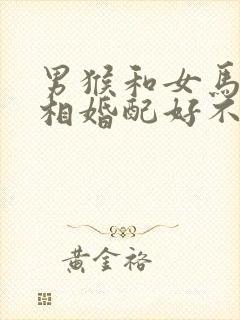 男猴和女馬
相婚配好不
黄金裕